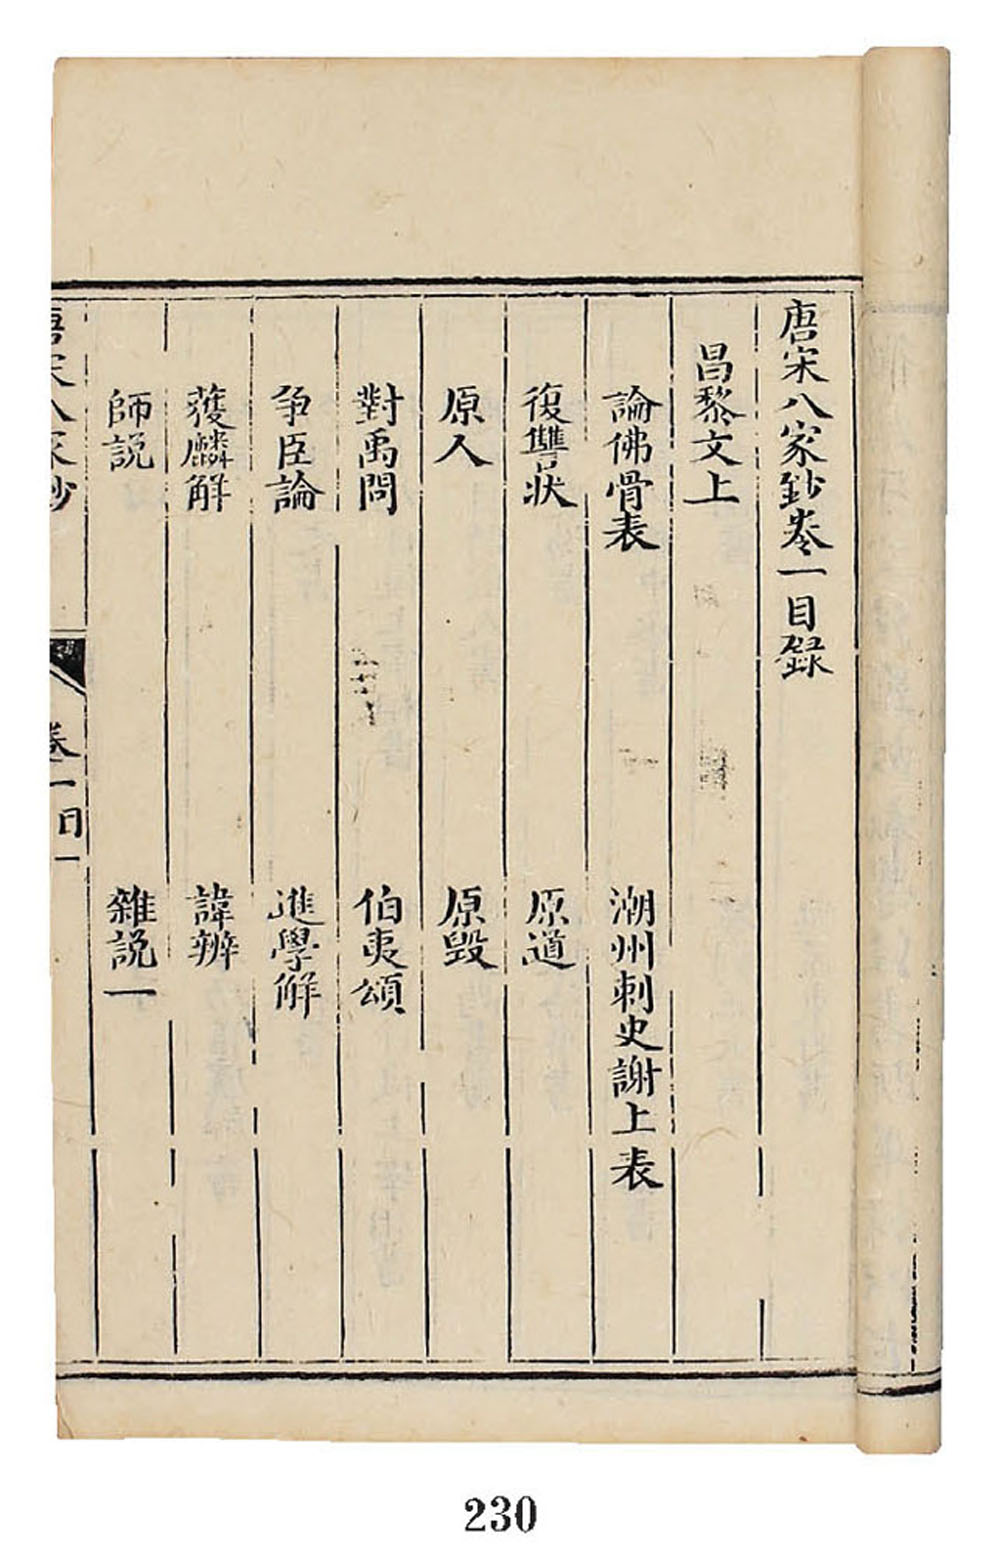 唐宋八家鈔卷一目録
昌黎文上
論佛骨表
潮州刺史謝上表
復讐狀
原道
原人
原毀
對禹問
伯夷頌
争臣論
進學解
獲麟解
諱辨
師説
雜説一
唐宋八家鈔
卷一目
一
230